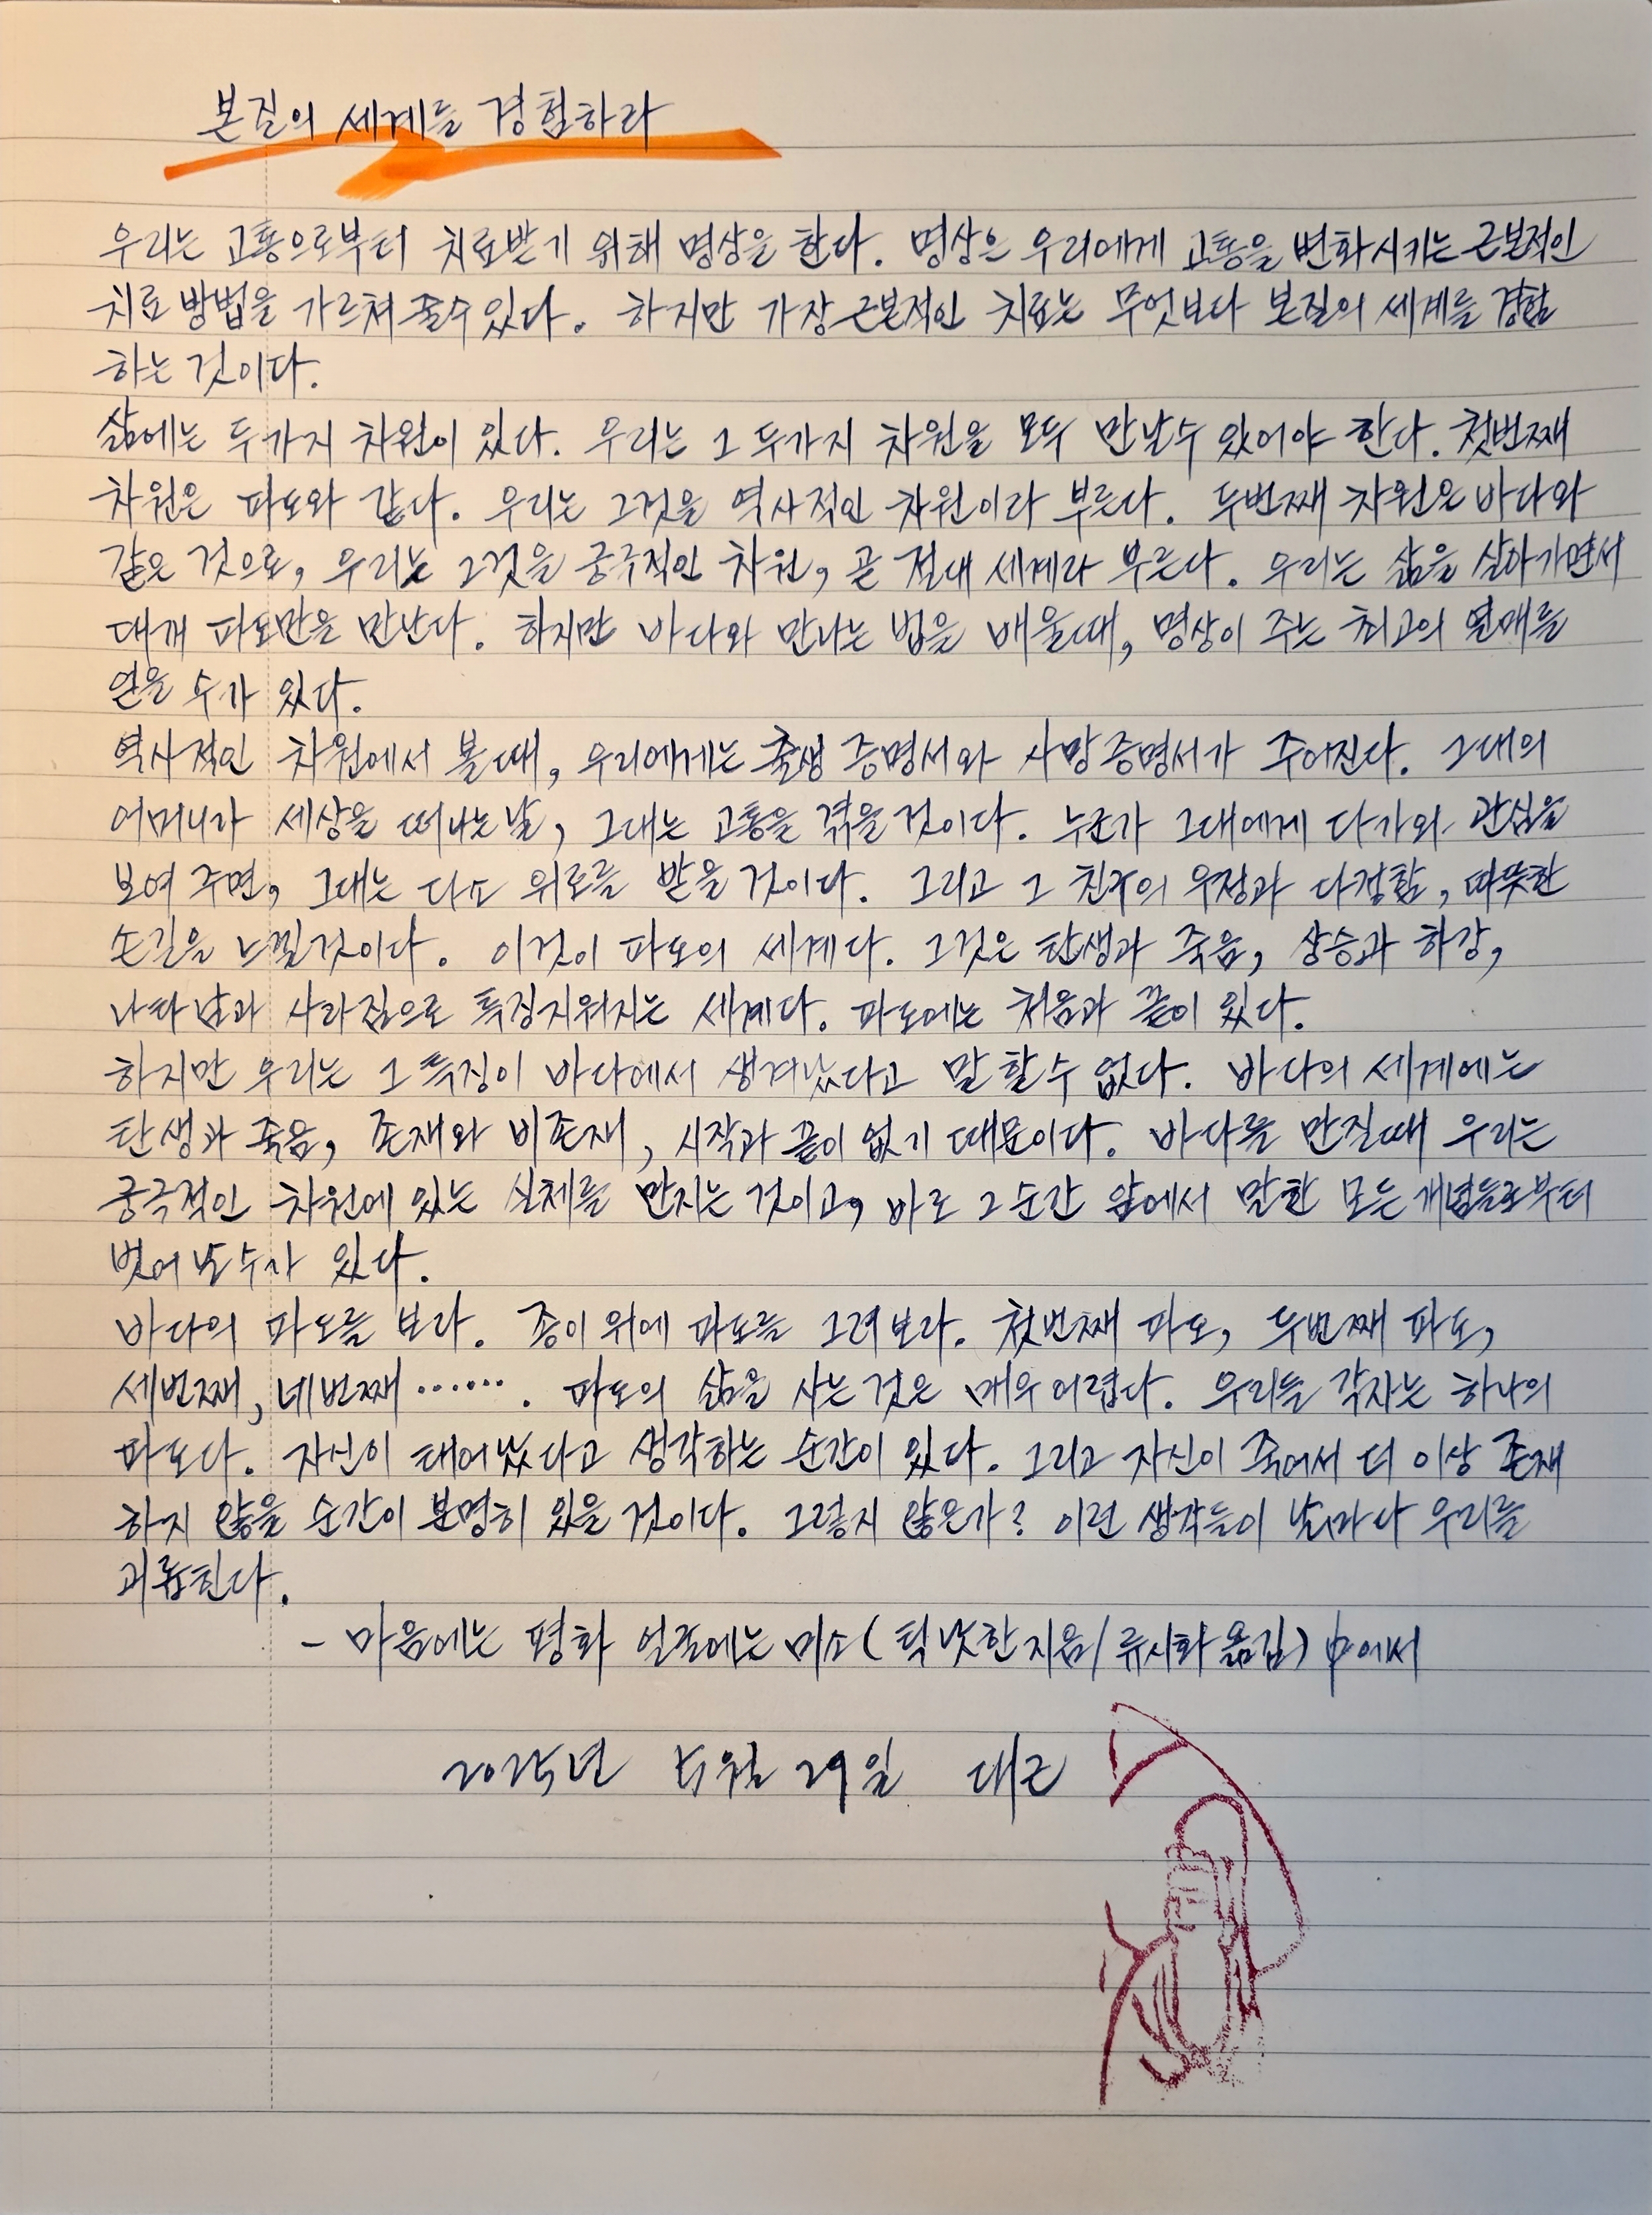 본질의 세계를 경험하라
우리는 고통으로부터 치료받기 위해 명상을 한다. 명상은 우리에게 고통을 변화시키는 근본적인
치료 방법을 가르쳐 줄수 있다. 하지만 가장 근본적인 치료는 무엇보다 본질의 세계를 경험
하는 것이다.
삶에는 두가지 차원이 있다. 우리는 그 두가지 차원을 모두 만날수 있어야 한다. 첫번째
차원은 파도와 같다. 우리는 그것을 역사적인 차원이라 부른다. 두번째 차원은 바다와
같은 것으로, 우리는 그것을 궁극적인 차원, 곧 절대 세계라 부른다. 우리는 삶을 살아가면서
대개 파도만을 만난다. 하지만 바다와 만나는 법을 배울때, 명상이 주는 최고의 열매를
얻을 수가 있다.
역사적인 차원에서 볼때, 우리에게는 출생 증명서와 사망증명서가 주어진다. 그대의
어머니가 세상을 떠나는날, 그대는 고통을 겪을것이다. 누군가 그대에게 다가와 관심을
보여 주면, 그대는 다소 위로를 받을 것이다. 그리고 그 친구의 우정과 다정함, 따뜻한
손길을 느낄것이다. 이것이 파도의 세계다. 그것은 탄생과 죽음, 상승과 하강,
나타남과 사라짐으로 특징지워지는 세계다. 파도에는 처음과 끝이 있다.
하지만 우리는 그 특징이 바다에서 생겨났다고 말 할수 없다. 바다의 세계에는
탄생과 죽음, 존재와 비존재, 시작과 끝이 없기 때문이다. 바다를 만질때 우리는
궁극적인 차원에 있는 실체를 만지는 것이고, 바로 그 순간 앞에서 말한 모든 개념들로부터
벗어날수가 있다.
바다의 파도를 보라. 종이 위에 파도를 그려보라. 첫번째 파도, 두번째 파도,
세번째, 네번째 ....... 파도의 삶을 사는 것은 매우 어렵다. 우리들 각자는 하나의
파도다. 자신이 태어났다고 생각하는 순간이 있다. 그리고 자신이 죽어서 더 이상 존재
하지 않을 순간이 분명히 있을 것이다. 그렇지 않은가? 이런 생각들이 날마다 우리를
괴롭힌다.
- 마음에는 평화 얼굴에는 미소 (틱낫한 지음/류시화 옮김) 中에서
2025년 5월 29일 대근